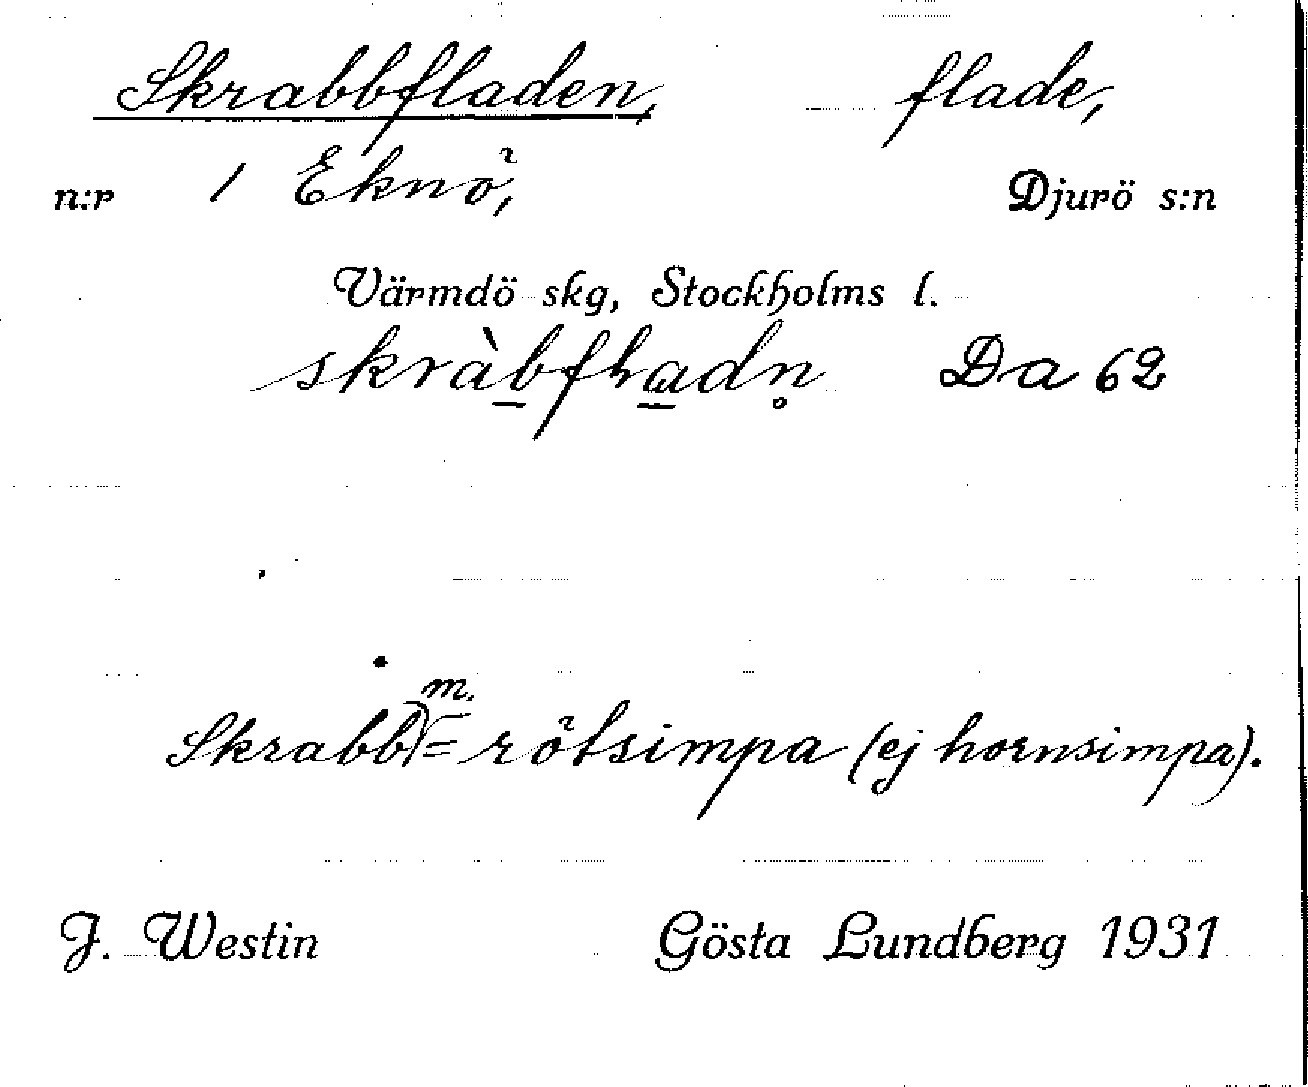 Skrabbfladen, flade,
n:r 1 Eknö, Djurö s:n
Värmdö skg, Stockholms l.
skràb̲fɫa̲dn̥ Da 62
m.
Skrabb) = rötsimpa (ej hornsimpa).
J. Westin Gösta Lundberg 1931